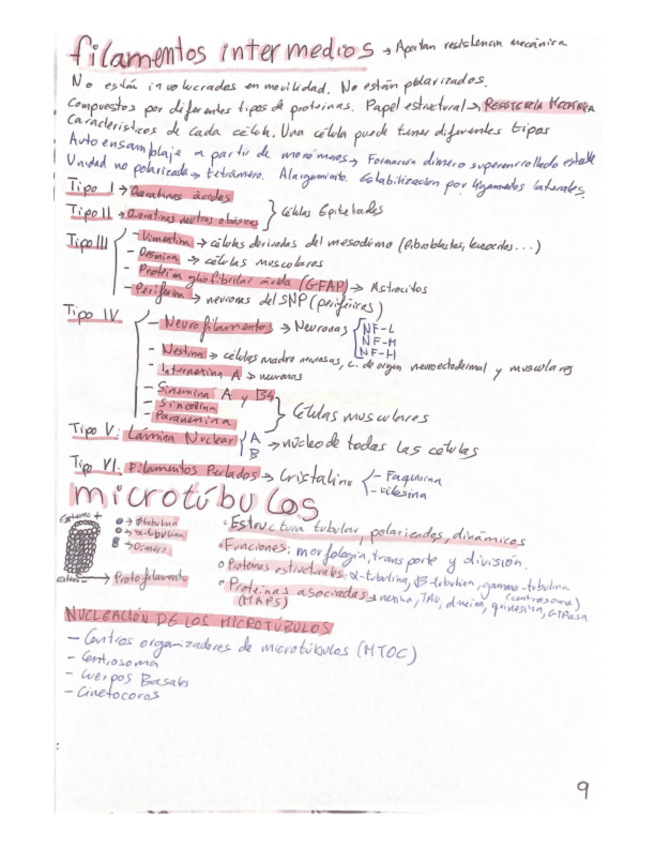 filamentos intermedios → Aportan resistencia mecánica
No están involucrados en movilidad. No están polarizados.
Compuestos por diferentes tipos de proteínas. Papel estructural → RESISTENCIA MECÁNICA
Característicos de cada célula. Una célula puede tener diferentes tipos
Auto ensamblaje a partir de monómeros → Formación dímero superenrollado estable
Unidad no polarizada → tetrámero. Alargamiento. Estabilización por ligamentos laterales.
Tipo I → Queratinas ácidas
Tipo II → Queratinas neutras o básicas } Células Epiteliales
Tipo III { - Vimentina → células derivadas del mesodermo (fibroblastos, ...)
- Desmina → células musculares
- Proteína gliofibrilar ácida (GFAP) → Astrocitos
- Periferina → neuronas del SNP (periféricas)
Tipo IV { - Neurofilamentos → Neuronas { NF-L
NF-M
NF-H
- Nestina → células madre nerviosas, c. de origen neuroectodermal y musculares
- Internexina A → neuronas
- Sinemina A y B
- Sincoilina
- Paranemina } Células musculares
Tipo V: Lámina Nuclear { A
B → núcleo de todas las células
Tipo VI: Filamentos Perlados → Cristalino { - Faquinina
- Filesina
microtúbulos
Extremo +
→ β tubulina
→ α-tubulina
→ Dímero
→ Protofilamento
• Estructura tubular, polarizados, dinámicos
• Funciones: morfología, transporte y división.
• Proteínas estructurales: α-tubulina, β-tubulina, gamma-tubulina (centrosoma)
• Proteínas asociadas → nexina, TAU, dineína, quinesina, GTPasa
(MAPS)
NUCLEACIÓN DE LOS MICROTÚBULOS
- Centros organizadores de microtúbulos (MTOC)
- Centrosoma
- Cuerpos Basales
- Cinetocoros
9